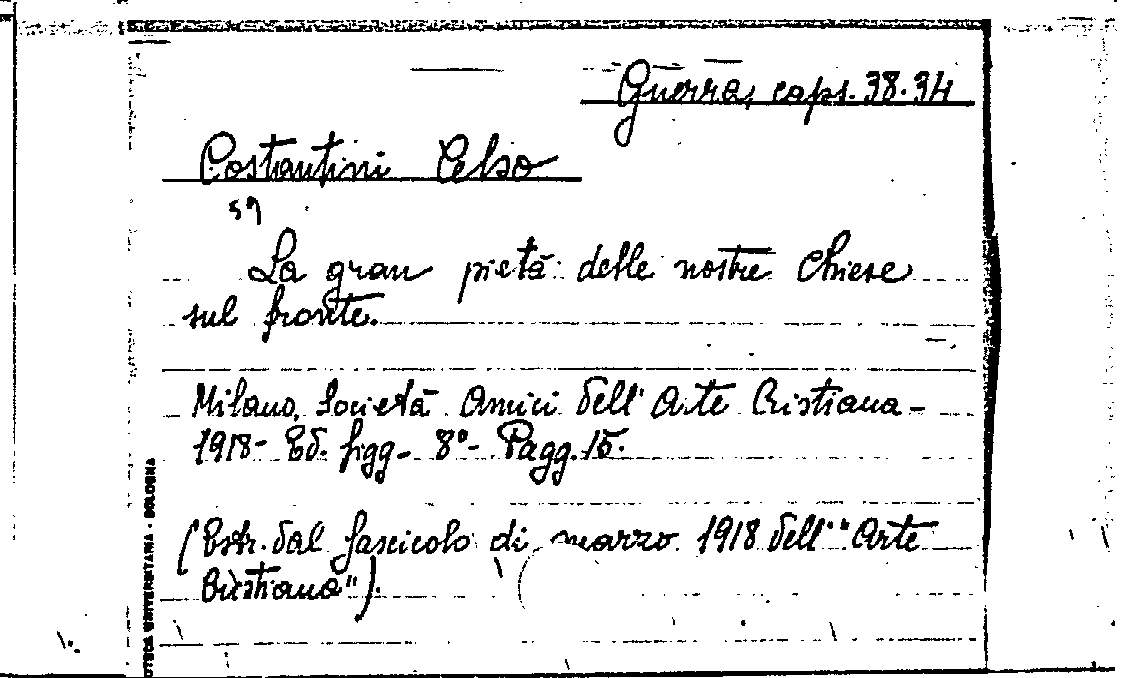 Guerra, caps. 38.34
Costantini Celso
59
La gran pietà delle nostre Chiese
sul fronte.
Milano, Società Amici dell'Arte Cristiana -
1918 - Ed. figg - 8° - Pagg. 15.
(Estr. dal fascicolo di marzo 1918 dell'"Arte
Cristiana").
OTECA UNIVERSITARIA - BOLOGNA